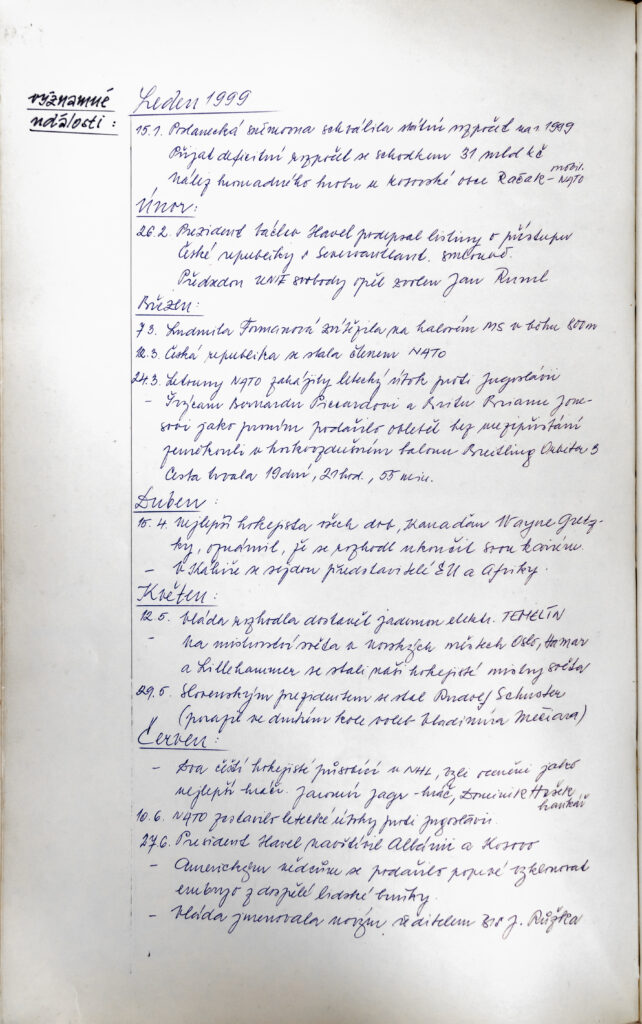 významné
události:
Leden 1999
15.1. Poslanecká sněmovna schválila státní rozpočet na r. 1999
Přijat deficitní rozpočet se schodkem 31 mld kč
Nález hromadného hrobu u kosovské obce Račak - mobil. NATO
Únor:
26.2. Prezident Václav Havel podepsal listiny o přístupu
České republiky k Severoatland. smlouvě.
Předsedou UNIE svobody opět zvolen Jan Ruml
Březen:
7.3. Ludmila Formanová zvítězila na halovém MS v běhu 800m
12.3. Česká republika se stala členem NATO
24.3. Letouny NATO zahájily letecký útok proti Jugoslávii
- Švýcaru Bernardu Piccardovi a Britu Brianu Jone-
sovi jako prvním podařilo obletět bez mezipřistání
zeměkouli v horkovzdušném balonu Breitling Orbiter 3
Cesta trvala 19 dní, 21 hod., 55 min.
Duben:
15.4. Nejlepší hokejista všech dob, Kanaďan Wayne Gretz-
ky, oznámil, že se rozhodl ukončit svou kariéru.
- V Káhiře se sejdou představitelé EU a Afriky.
Květen:
12.5. Vláda rozhodla dostavět jadernou elektr. TEMELÍN
- Na mistrovství světa v norských městech Oslo, Hamar
a Lillehammer se stali naši hokejisté mistry světa
29.5. Slovenským prezidentem se stal Rudolf Schuster
(porazil ve druhém kole voleb Vladimíra Mečiara)
Červen:
- Dva čeští hokejisté působící v NHL, byli oceněni jako
nejlepší hráči. Jaromír Jágr - hráč, Dominik Hašek
brankář
10.6. NATO zastavilo letecké útoky proti Jugoslávii.
27.6. Prezident Havel navštívil Albánii a Kosovo
- Americkým vědcům se podařilo poprvé vyklonovat
embryo z dospělé lidské buňky.
- Vláda jmenovala novým ředitelem BIS J. Růžka